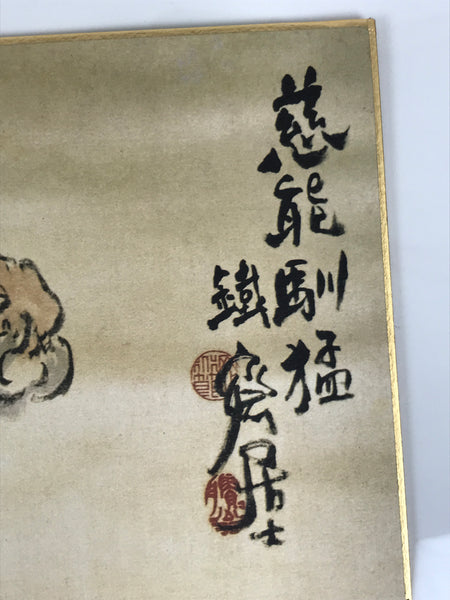 慈能馴猛
鐵齋居士